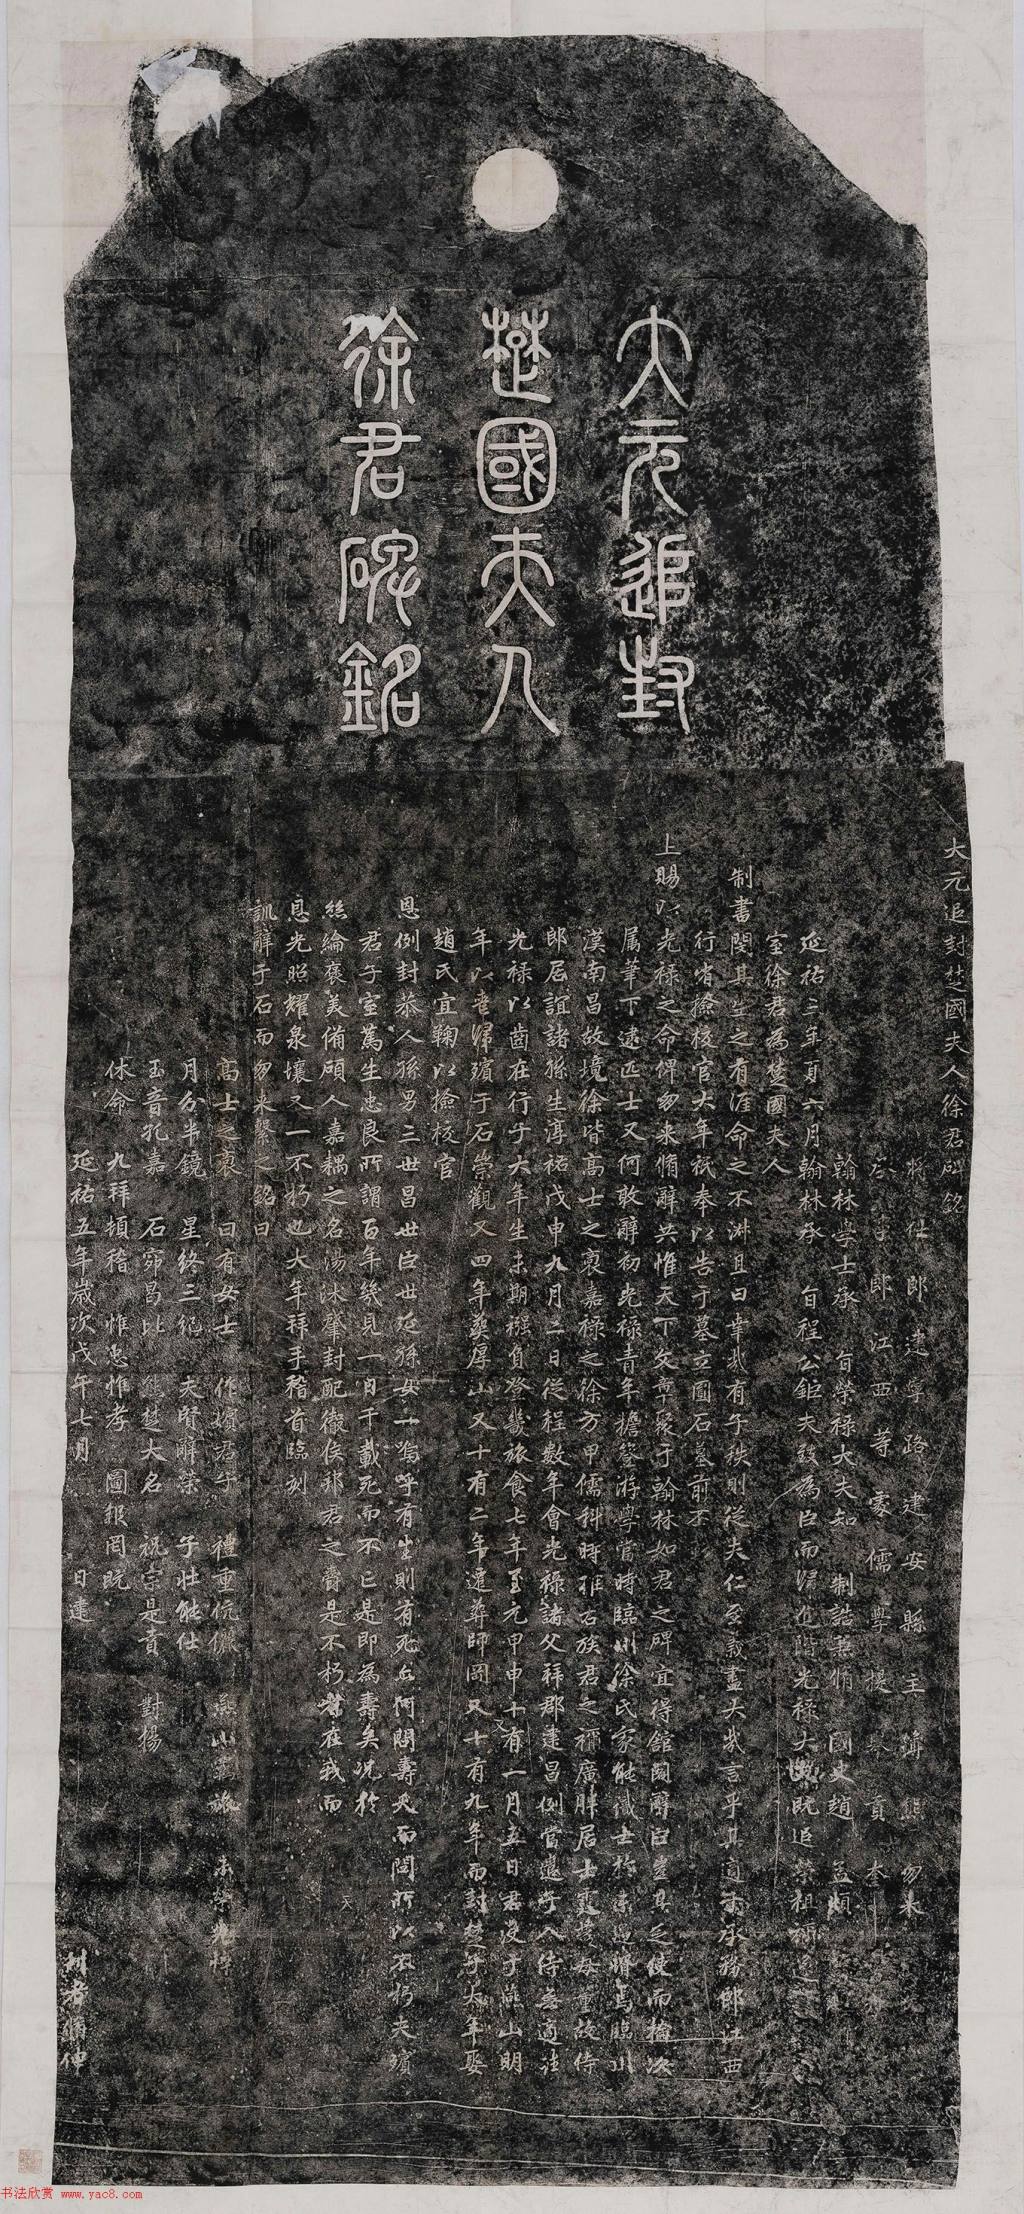 大元追封
楚國夫人
徐君碑銘
大元追封楚國夫人徐君碑銘
將仕郎建寧路建安縣主簿熊勿来
郎江西等䖏儒學提舉貢奎
翰林學士承旨榮祿大夫知制誥兼脩國史趙孟頫
延祐三年夏六月翰林承旨程公鉅夫致為臣而歸進階光祿大既追榮祖禰
室徐君為楚國夫人
制書閔其生之有涯命之不淑且曰幸哉有子秩則從夫仁至義盡大哉言乎其適承務郎江西
行省檢校官大年祇奉以告于墓立圓石墓前丕
上賜以光祿之命俾勿来脩辭共惟天下文章聚于翰林如君之碑宜得館閣辭臣豈其乏使而掄次
属筆下逮匹士又何敢辭初光祿青年擔簦游學當時臨川徐氏家能儀士於焉臨川
漢南昌故境徐皆高士之裔嘉祿之徐方甲儒科時推右族君之禰廣胖居士
郎居誼諸孫生淳祐戊申九月二日從程數年會光祿諸父拜郡建昌例當遣子入侍適往
光祿以齒在行于大年生未期襁負登幾旅食七年至元甲申十有一月五日君没于燕山明
年以喪歸殯于石崇觀又四年葬厚山又十有二年遷葬師岡又十有九年而封楚子大年娶
趙氏宜鞠以檢校官
恩例封恭人孫男三世昌世臣世延孫女一嗚乎有生則有死何問壽夭而問所以不朽夫嬪
君子室篤生忠良所謂百年幾見一日千載死而不亡是即為壽矣况於
絲綸褒美備碩人嘉耦之名湯沐肇封配徹侯邦君之貴是不朽者在我而
恩光照耀泉壤又一不朽也大年拜手稽首臨刻
訓辭于石而勿来繫之銘曰
高士之裔 曰有女士 作嬪君子 禮重伉儷 燕山
月分半鏡 星終三紀 夫爵辭榮 子壯能仕
玉音孔嘉 石窌昌比 錫楚大名 祝宗是賁 對揚
休命 九拜頓稽 惟忠惟孝 圖報罔既
延祐五年歲次戊午七月 日建
書法欣賞 www.yac8.com